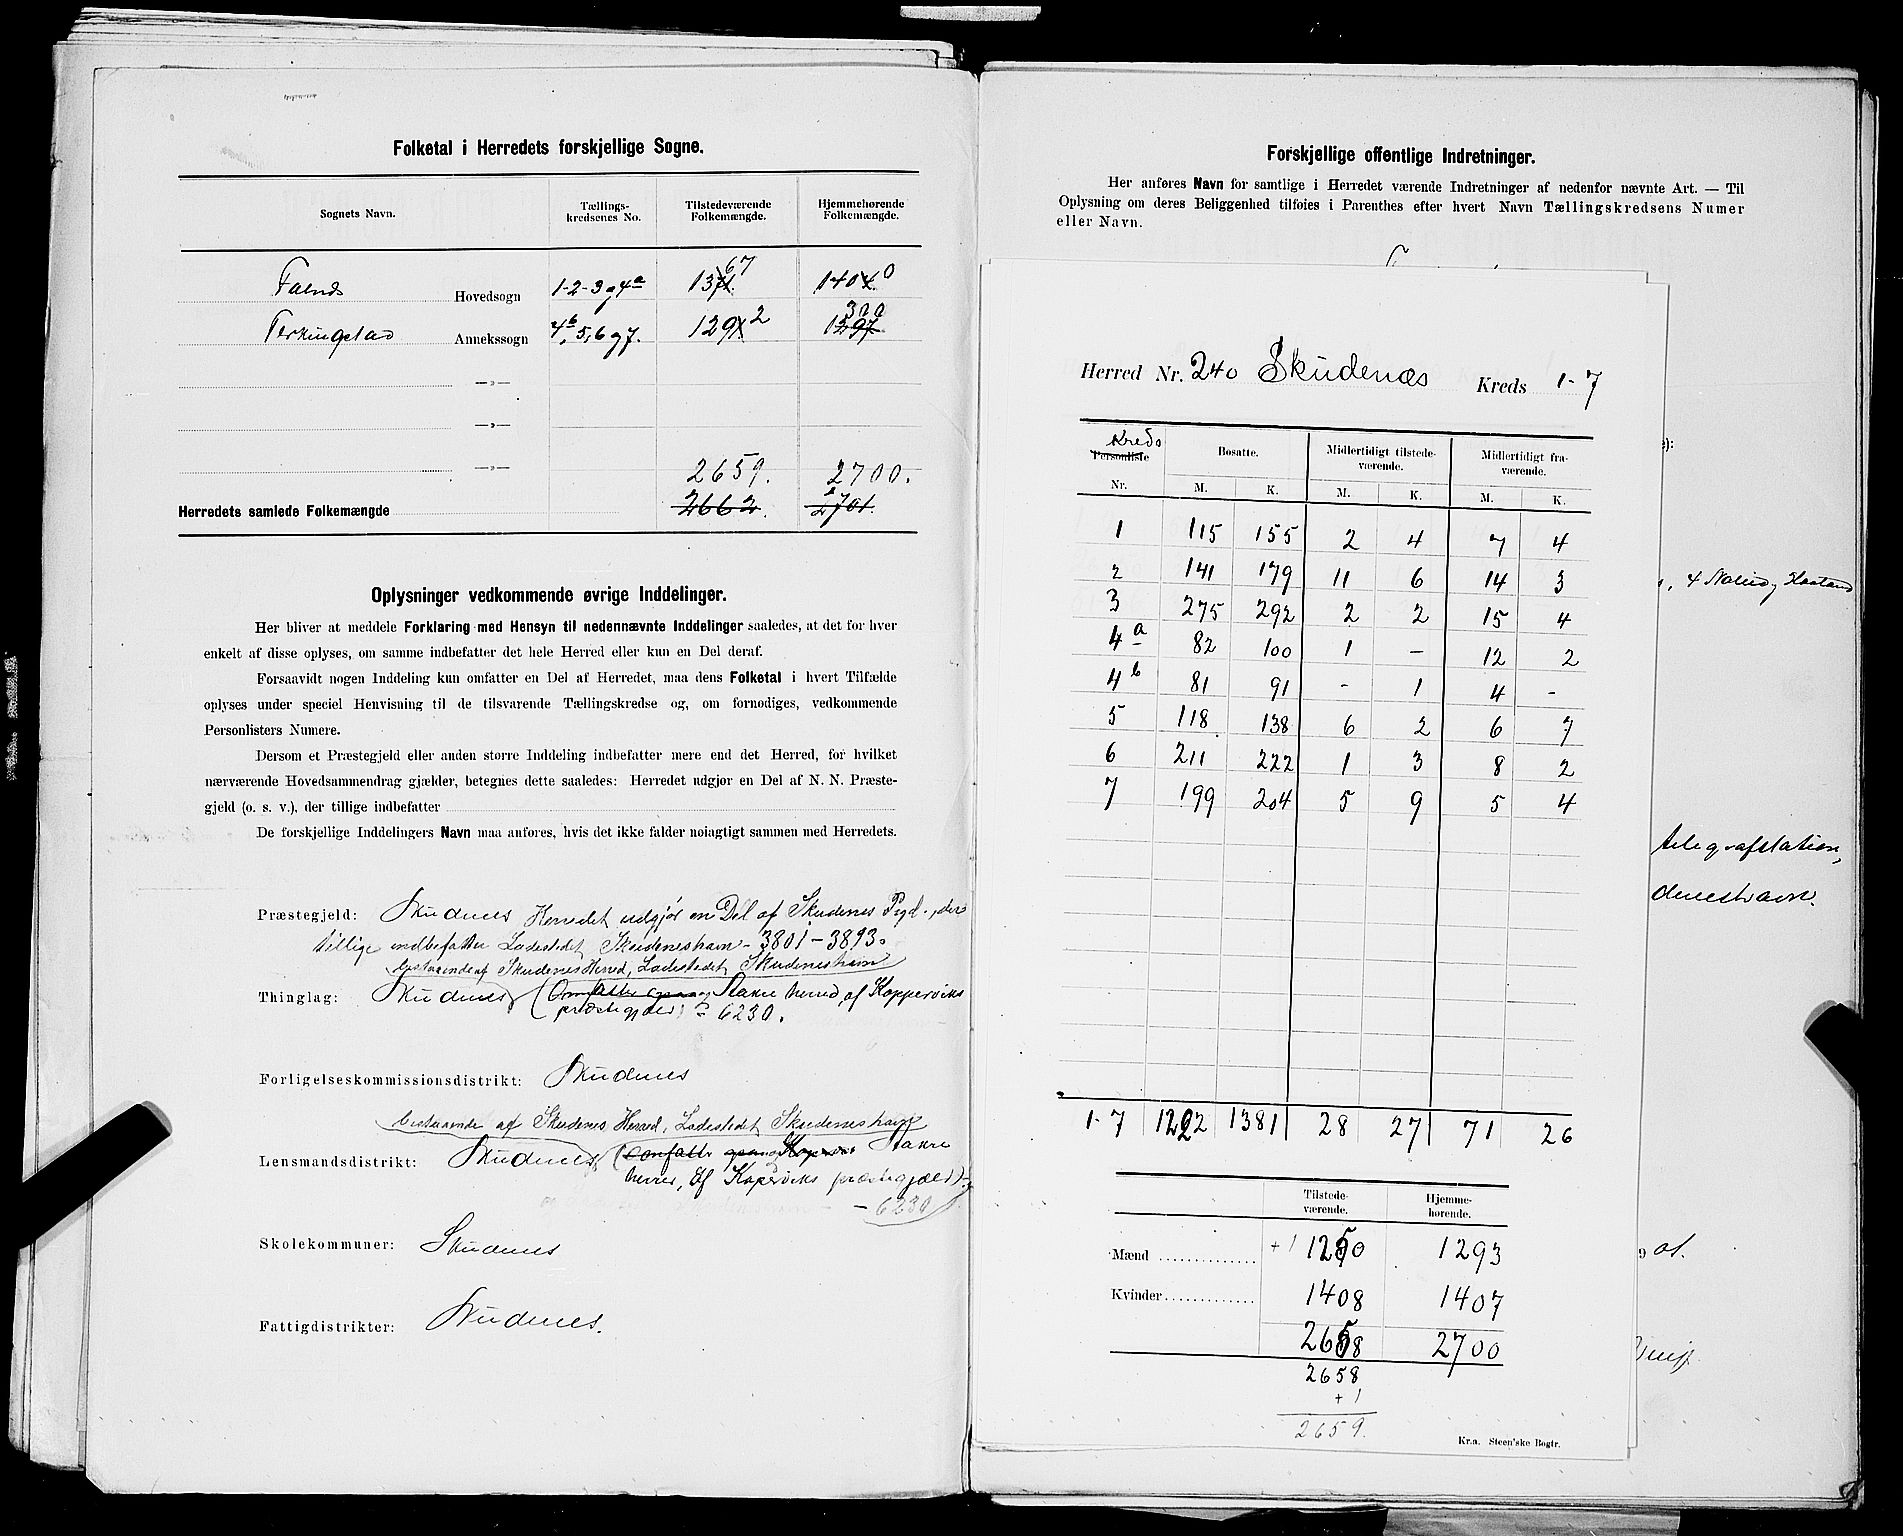 Folketal i Herredets forskjellige Sogne.
Sognets Navn. Tællings-kredsenes No. Tilstedeværende Folkemængde. Hjemmehørende Folkemængde.
Falnes Hovedsogn 1-2-3 og 4a 1371 67 1404 0
Ferkingstad Annekssogn 4b, 5, 6 og 7. 1291 2 1297 300
—»—
—»—
—»— 2659. 2700.
Herredets samlede Folkemængde 2662. 2701.
Oplysninger vedkommende øvrige Inddelinger.
Her bliver at meddele Forklaring med Hensyn til nedennævnte Inddelinger saaledes, at det for hver
enkelt af disse oplyses, om samme indbefatter det hele Herred eller kun en Del deraf.
Forsaavidt nogen Inddeling kun omfatter en Del af Herredet, maa dens Folketal i hvert Tilfælde
oplyses under speciel Henvisning til de tilsvarende Tællingskredse og, om fornødiges, vedkommende
Personlisters Numere.
Dersom et Præstegjeld eller anden større Inddeling indbefatter mere end det Herred, for hvilket
nærværende Hovedsammendrag gjælder, betegnes dette saaledes: Herredet udgjør en Del af N. N. Præste-
gjeld (o. s. v.), der tillige indbefatter
De forskjellige Inddelingers Navn maa anføres, hvis det ikke falder nøiagtigt sammen med Herredets.
Præstegjeld: Skudenes Herredet udgjør en Del af Skudenes Pgd., der
tillige indbefatter Ladestedet Skudeneshavn - 3801 - 3893.
bestaaende af Skudenes Herred, Ladestedet Skudeneshavn
Thinglag: Skudenes (Omfatter ogsaa og Stakre herred, af Koppervike
præstegjæld) = 6230.
Forligelseskommissionsdistrikt: Skudenes
bestaaende af Skudenes Herred, Ladestedet Skudeneshavn
Lensmandsdistrikt: Skudenes (omfatter ogsaa og Stakre
herred, af Kopervíks præstegjæld)
- 6230
Skolekommuner: Skudenes
Fattigdistrikter: Skudenes.
Forskjellige offentlige Indretninger.
Her anføres Navn for samtlige i Herredet værende Indretninger af nedenfor nævnte Art. — Til
Oplysning om deres Beliggenhed tilføies i Parenthes efter hvert Navn Tællingskredsens Numer
eller Navn.
Herred Nr. 240 Skudenæs Kreds 1-7
Kreds
Personliste Nr. Bosatte. Midlertidigt tilstede-værende. Midlertidigt fra-værende.
M. K. M. K. M. K.
1 115 155 2 4 7 4
2 141 179 11 6 14 3
3 275 292 2 2 15 4
4a 82 100 1 — 12 2
4b 81 91 - 1 4 -
5 118 138 6 2 6 7
6 211 222 1 3 8 2
7 199 204 5 9 5 4
1-7 1222 1381 28 27 71 26
Tilstede-værende. Hjemme-hørende.
Mænd +1 1250 1293
Kvinder 1408 1407
2658 2700
2658
+ 1
2659.
Kr.a. Steen'ske Bogtr.
telegrafstation,
deneshavn.